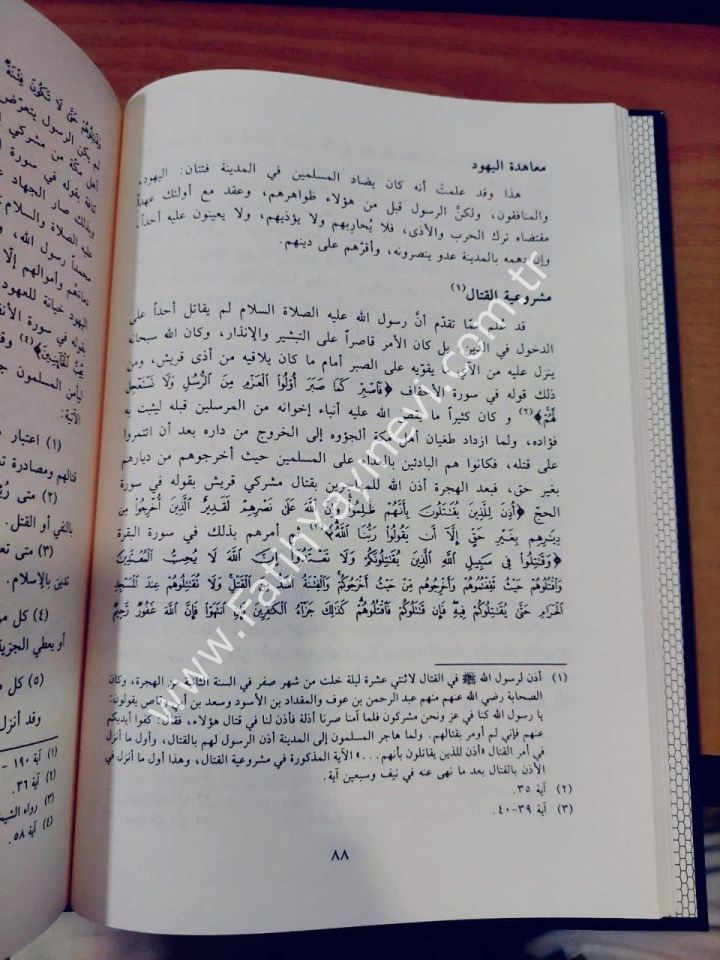 معاهدة اليهود
هذا وقد علمتَ أنه كان يضاد المسلمين في المدينة فئتان: اليهود،
والمنافقون، ولكنَّ الرسول قبل من هؤلاء ظواهرهم، وعقد مع أولئك عهداً
مقتضاه ترك الحرب والأذى، فلا يُحاربهم ولا يؤذيهم، ولا يعينون عليه أحداً،
وإن دهمه بالمدينة عدو ينصرونه، وأقرّهم على دينهم.
مشروعية القتال(١)
قد علم ممّا تقدّم أنَّ رسول الله عليه الصلاة السلام لم يقاتل أحداً على
الدخول في الدين، بل كان الأمر قاصراً على التبشير والإنذار، وكان الله سبحانه
ينزل عليه من الآي ما يقوّيه على الصبر أمام ما كان يلاقيه من أذى قريش، ومن
ذلك قوله في سورة الأحقاف ﴿فَاصْبِرْ كَمَا صَبَرَ أُوْلُوا الْعَزْمِ مِنَ الرُّسُلِ وَلَا تَسْتَعْجِل
لَّهُمْ﴾(٢) و كان كثيراً ما يقص الله عليه أنباء إخوانه من المرسلين قبله ليثبت به
فؤاده، ولما ازداد طغيان أهل مكة ألجؤوه إلى الخروج من داره بعد أن ائتمروا
على قتله، فكانوا هم البادئين بالعداء على المسلمين حيث أخرجوهم من ديارهم
بغير حق، فبعد الهجرة أذن الله للمهاجرين بقتال مشركي قريش بقوله في سورة
الحج ﴿أُذِنَ لِلَّذِينَ يُقَاتَلُونَ بِأَنَّهُمْ ظُلِمُوا وَإِنَّ اللَّهَ عَلَى نَصْرِهِمْ لَقَدِيرٌ الَّذِينَ أُخْرِجُوا مِن
دِيَارِهِم بِغَيْرِ حَقٍّ إِلَّا أَن يَقُولُوا رَبُّنَا اللَّهُ﴾(٣) ثم أمرهم بذلك في سورة البقرة
﴿وَقَاتِلُوا فِي سَبِيلِ اللَّهِ الَّذِينَ يُقَاتِلُونَكُمْ وَلَا تَعْتَدُوا إِنَّ اللَّهَ لَا يُحِبُّ الْمُعْتَدِينَ
وَاقْتُلُوهُمْ حَيْثُ ثَقِفْتُمُوهُمْ وَأَخْرِجُوهُم مِّنْ حَيْثُ أَخْرَجُوكُمْ وَالْفِتْنَةُ أَشَدُّ مِنَ الْقَتْلِ وَلَا تُقَاتِلُوهُمْ عِندَ الْمَسْجِدِ
الْحَرَامِ حَتَّى يُقَاتِلُوكُمْ فِيهِ فَإِن قَاتَلُوكُمْ فَاقْتُلُوهُمْ كَذَلِكَ جَزَاءُ الْكَافِرِينَ فَإِنِ انتَهَوْا فَإِنَّ اللَّهَ غَفُورٌ رَّحِيمٌ
(١) أذن لرسول الله ﷺ في القتال لاثنتي عشرة ليلة خلت من شهر صفر في السنة الثانية من الهجرة، وكان
الصحابة رضي الله عنهم منهم عبد الرحمن بن عوف والمقداد بن الأسود وسعد بن أبي وقاص يقولون:
يا رسول الله كنا في عز ونحن مشركون فلما آمنا صرنا أذلة فأذن لنا في قتال هؤلاء، فقال: كفوا أيديكم
عنهم فإني لم أومر بقتالهم. ولما هاجر المسلمون إلى المدينة أذن الرسول لهم بالقتال، وأول ما أنزل
في أمر القتال «أذن للذين يقاتلون بأنهم . . .» الآية المذكورة في مشروعية القتال، وهذا أول ما أنزل في
الأذن بالقتال بعد ما نهى عنه في نيف وسبعين آية.
(٢) آية ٣٥.
(٣) آية ٣٩-٤٠.
٨٨
www.Fatihyayinevi.com.tr